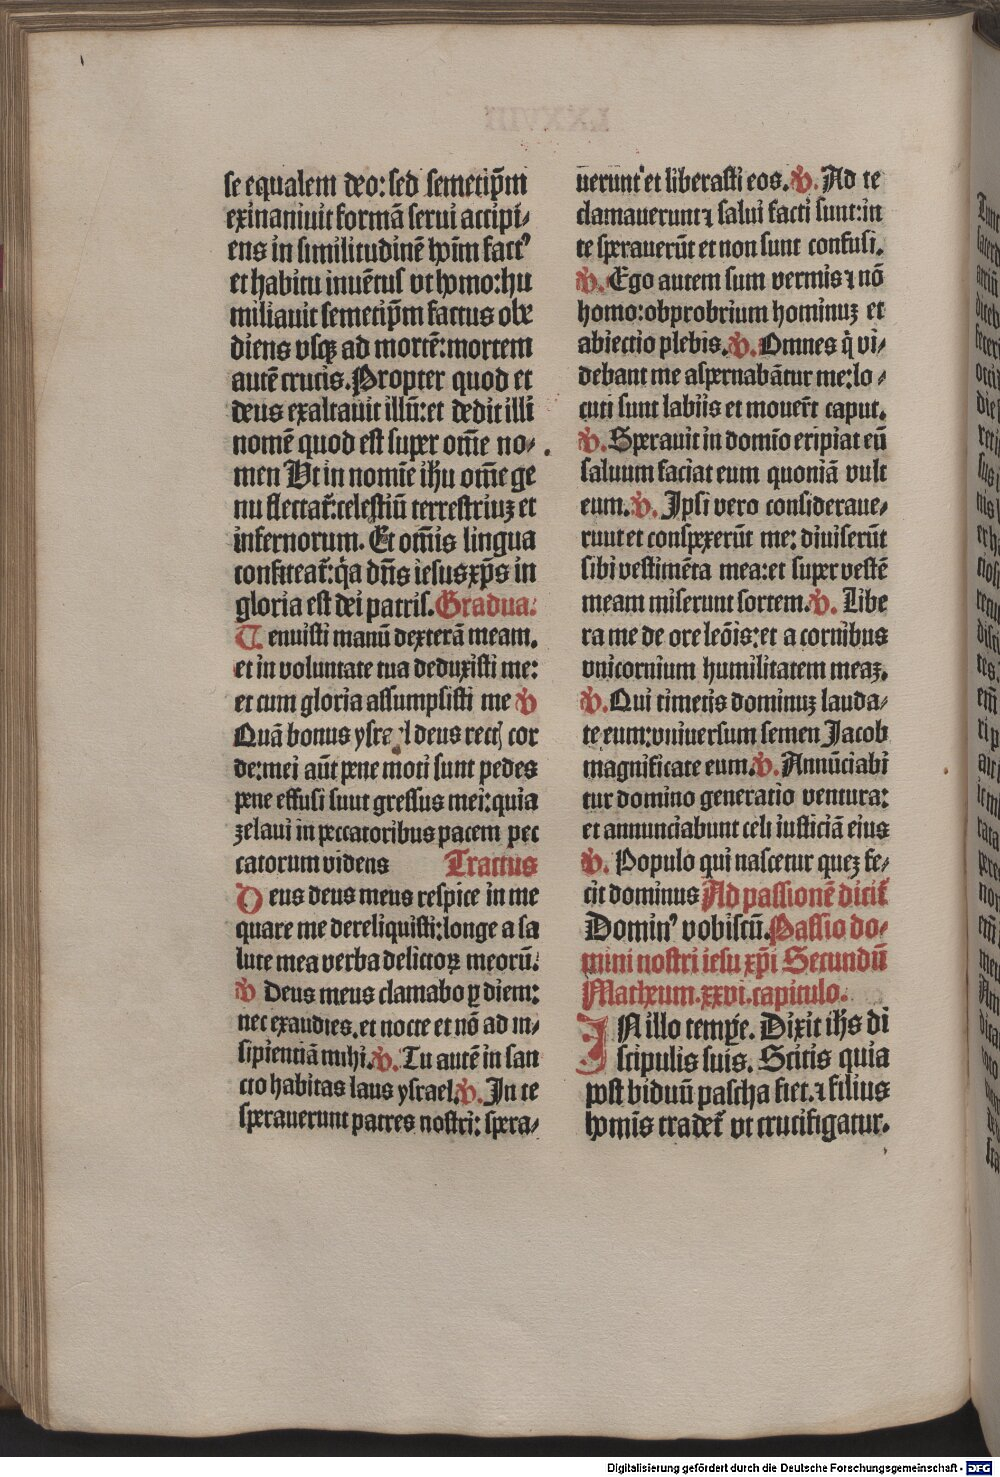 se equalem deo: sed semetip̄m
exinaniuit formā serui accipi⸗
ens in similitudinē hoīm factꝰ
et habitu inuētus vt homo: hu
miliauit semetip̄m factus obe
diens vsqꝫ ad mortē: mortem
autē crucis. Propter quod et
deus exaltauit illū: et dedit illi
nomē quod est super om̄e no⸗
men Ut in nomīe ihu om̄e ge
nu flectat᷑: celestiū terrestriuꝫ et
infernorum. Et om̄is lingua
confiteat᷑: q̇a dn̄s iesus xp̄s in
gloria est dei patris. Gradua:
Tenuisti manū dexterā meam.
et in voluntate tua deduxisti me:
et cum gloria assumpsisti me ℣
Quā bonus ysrael deus rectꝭ cor
de: mei aūt pene moti sunt pedes
pene effusi sunt gressus mei: quia
zelaui in peccatoribus pacem pec
catorum videns Tractus
Deus deus meus respice in me
quare me dereliquisti: longe a sa
lute mea verba delictoꝝ meorū:
℣ Deus meus clamabo ꝑ diem:
nec exaudies. et nocte et nō ad in⸗
sipientiā mihi. ℣. Tu autē in san
cto habitas laus ysrael. ℣. In te
sperauerunt patres nostri: spera⸗
uerunt et liberasti eos. ℣. Ad te
clamauerunt ⁊ salui facti sunt: in
te sperauerūt et non sunt confusi.
℣. Ego autem sum vermis ⁊ nō
homo: obprobrium hominuꝫ et
abiectio plebis. ℣. Omnes q̇ vi⸗
debant me aspernabātur me: lo⸗
cuti sunt labiis et mouer̄t caput.
℣. Sperauit in domīo eripiat eū
saluum faciat eum quoniā vult
eum. ℣. Ipsi vero consideraue⸗
runt et conspexerūt me: diuiserūt
sibi vestimēta mea: et super vestē
meam miserunt sortem. ℣. Libe
ra me de ore leōis: et a cornibus
vnicornium humilitatem meaꝫ.
℣. Qui timetis dominuꝫ lauda⸗
te eum: vniuersum semen Jacob
magnificate eum. ℣. Annūciabi
tur domino generatio ventura:
et annunciabunt celi iusticiā eius
℣. Populo qui nascetur queꝫ fe⸗
cit dominus Ad passionē dicit᷑
Dominꝰ vobiscū. Passio do⸗
mini nostri iesu xp̄i Secundū
Matheum. xxvi. capitulo.
IN illo temp̄e. Dixit ih̄s di
scipulis suis. Scitis quia
post biduū pascha fiet. ⁊ filius
homīs tradet᷑ vt crucifigatur.
Digitalisierung gefördert durch die Deutsche Forschungsgemeinschaft - DFG